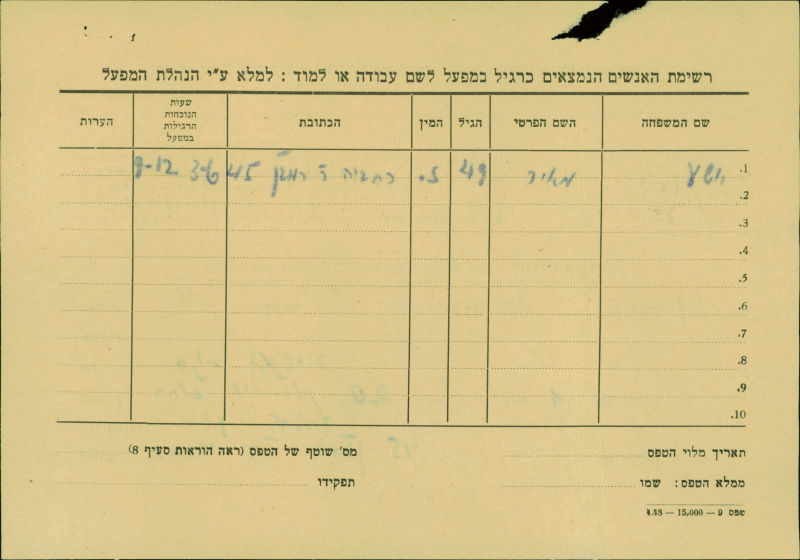 רשימת האנשים הנמצאים כרגיל במפעל לשם עבודה או למוד : למלא ע"י הנהלת המפעל
שם המשפחה השם הפרטי הגיל המין הכתובת שעות הנוכחות הרגילות במפעל הערות
1. מאיר 49 ז. רחביה רח 45 3-6 9-12
2.
3.
4.
5.
6.
7.
8.
9.
10.
תאריך מלוי הטפס מס' שוטף של הטפס (ראה הוראות סעיף 8)
ממלא הטפס : שמו תפקידו
טפס 9 — 15,000 — 4.48